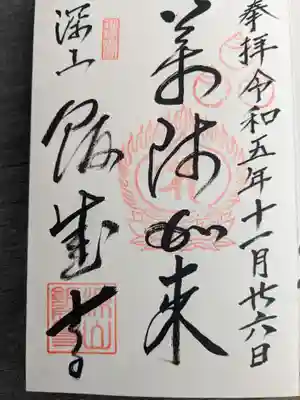 奉拝令和五年十一月廿六日
薬師如来
深山 飯盛寺